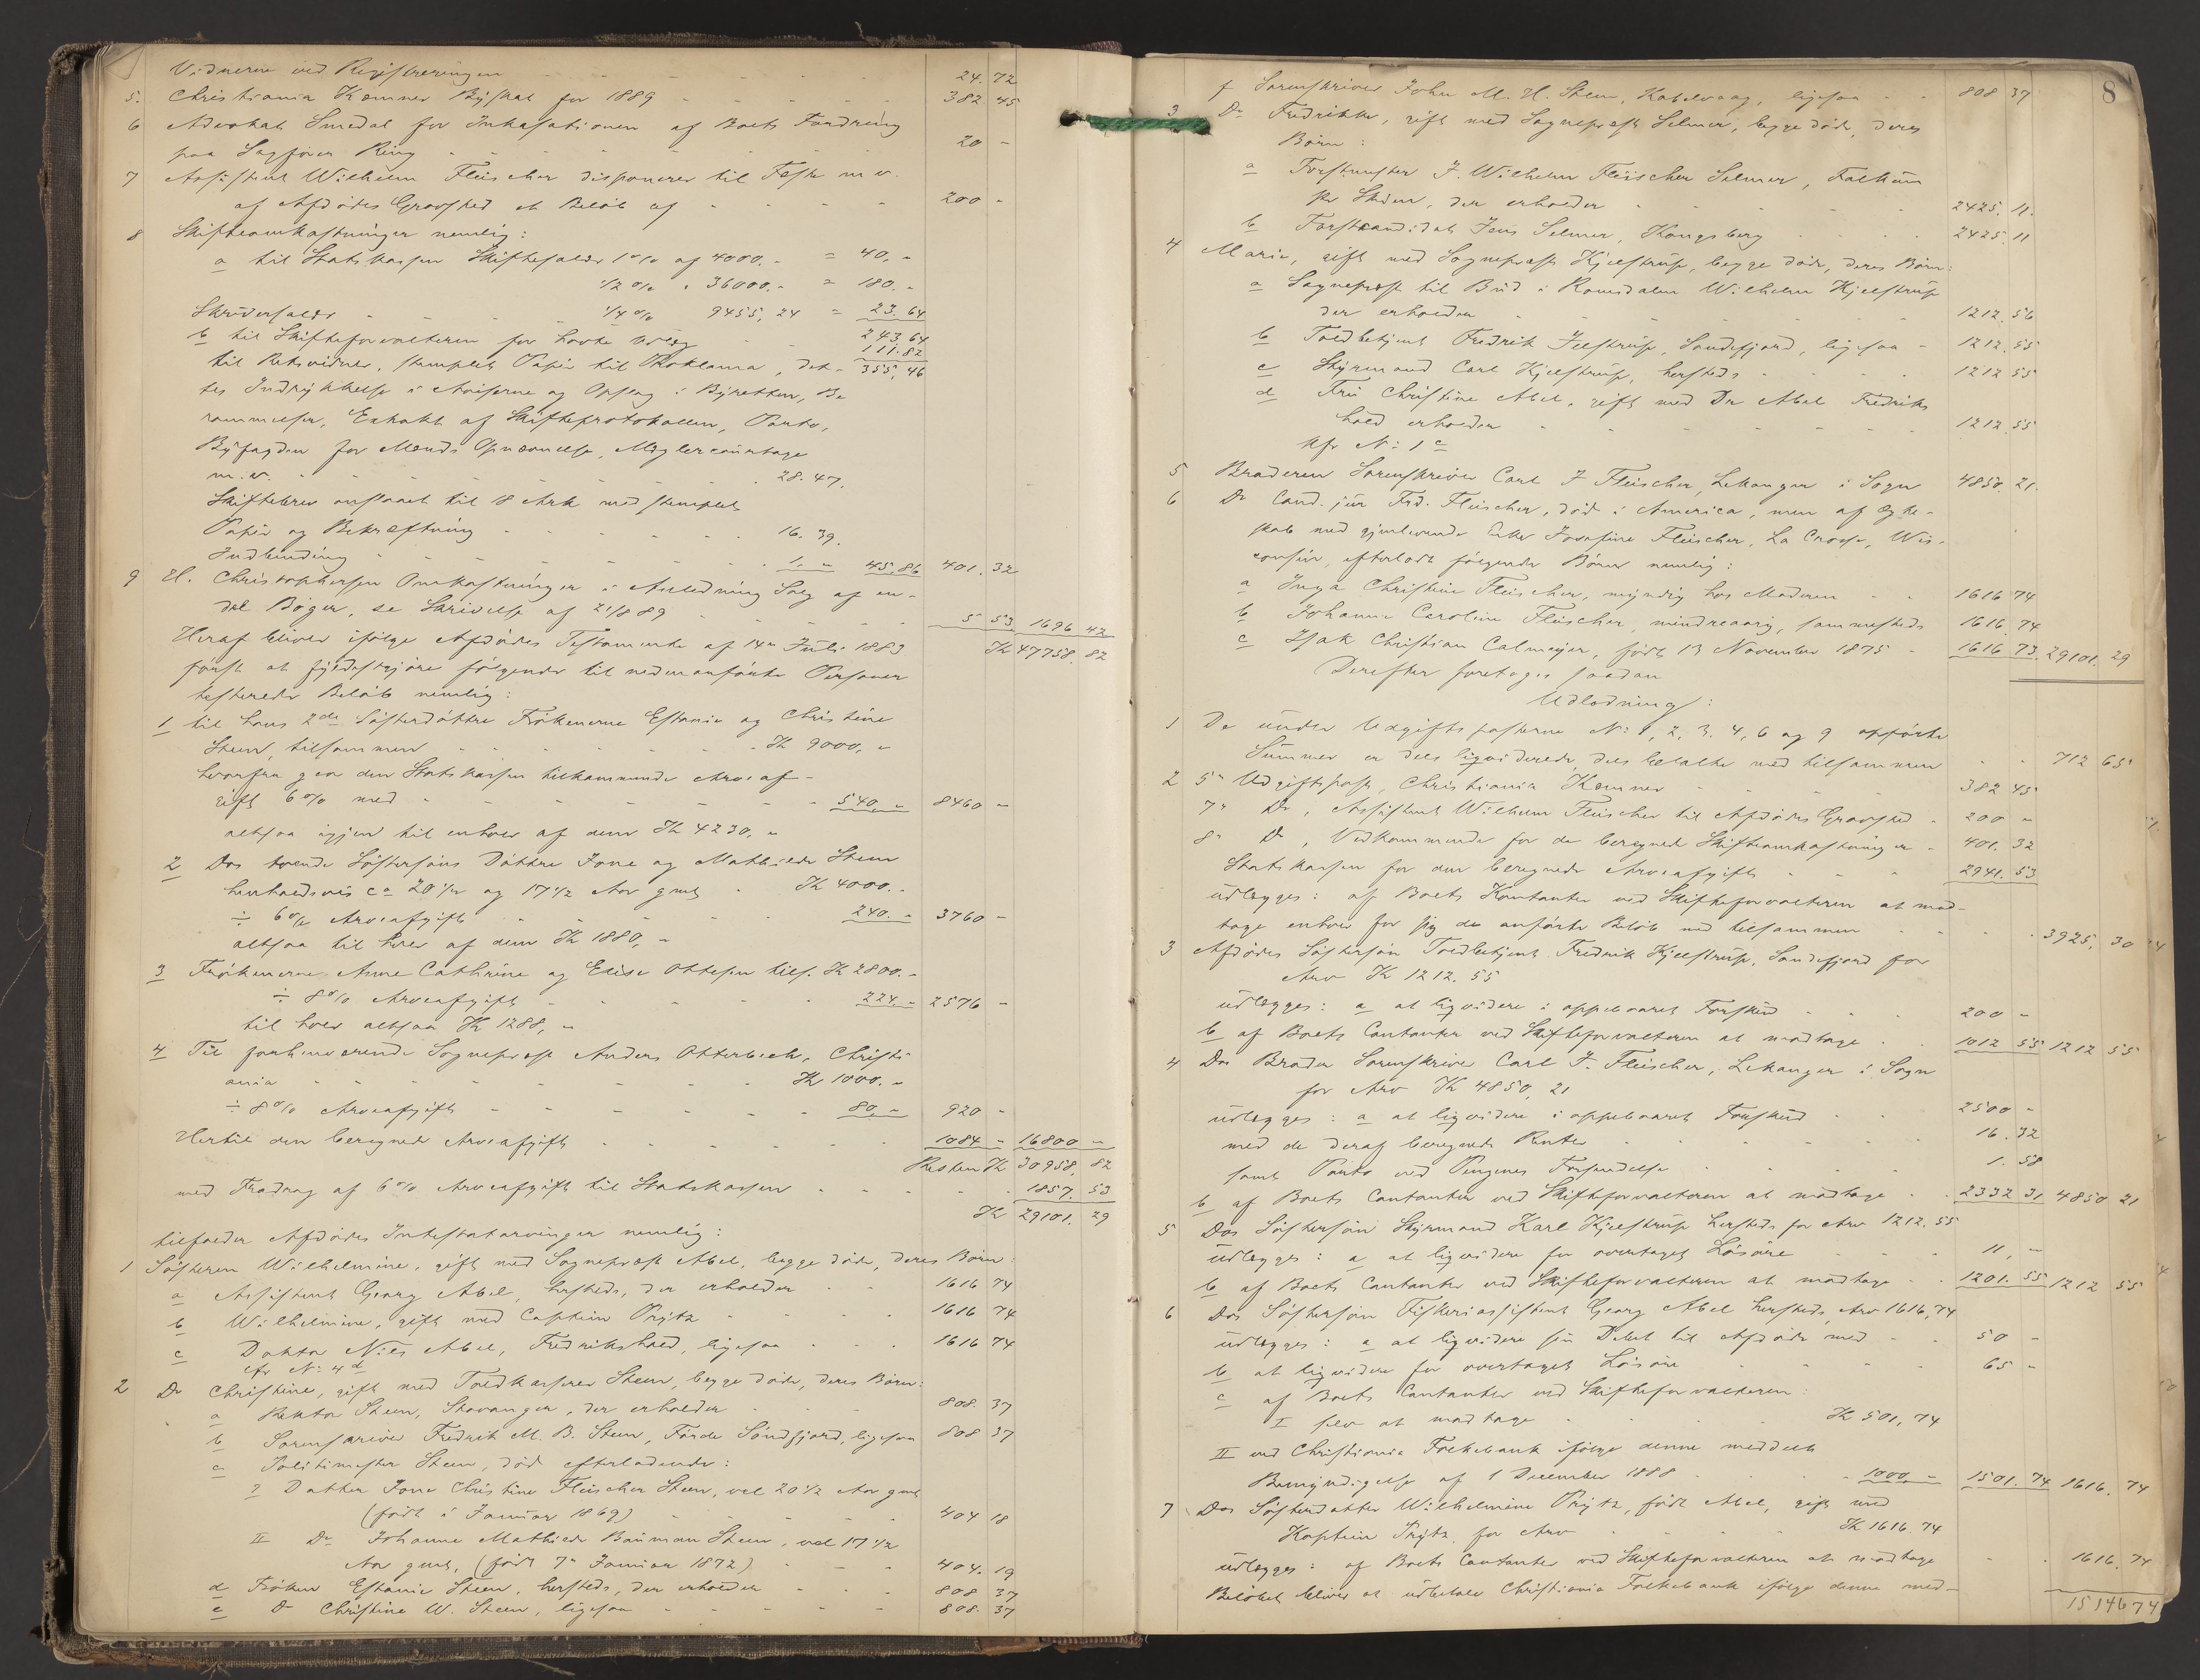 Vidnerne ved Registreringen - - - - - - 24. 72
5. Christiania Kæmner Byskat for 1889 - - - - - 382 45
6 Advokat Smedal for Inkasationen af Boets Fordring
paa Sagfører Ring - - - - - - - 20 -
7 Assistent Wilhelm Fleischer disponerer til Feste m. v.
af Afdødes Gravsted et Beløb af - - - - 200 -
8 Skifteomkostninger nemlig:
a til Statskassen Skiftesalær 1 % af 4000. - = 40, -
1/2 % " 36000. - = 180. -
Skriversalær - 1/4 % 9455, 24 = 23. 64
243, 64
b til Skifteforvalteren for Lovbe - 111. 82
til Retsvidner, stemplet Papir til Proklama, det- 355, 46
tes Indrykkelse i Aviserne og Opslag i Byretten, Be
rammelser, Extrakt af Skifteprotokollen, Porto,
Byfogden for Mænds Opnævnelse, Mæglercourtage
m. v. - - - - - - - 28. 47.
Skiftebrev anslaaet til 8 Ark med stemplet
Papir og Bekræftning - - - - - 16. 39.
Indbinding - - - - - - 1. - 45. 86 401. 32
9 H. Christophersen Omkostninger i Anledning Salg af en-
del Bøger, se Skrivelse af 21/8 89 - - - - 5 53. 1696 42
Kr 47758. 82
Heraf bliver ifølge Afdødes Testamente af 14de Juli 1883
først at fyldestgjøre følgende til nedenanførte Personer
testerede Beløb nemlig:
1 til hans 2de Søsterdøttre Frøknerne Estanie og Christine
Steen, tilsammen - - - - - - - Kr 9000. -
hvorfra gaar den Statskassen tilkommende Arveaf-
gift 6 % med - - - - - - - 540. - 8460 -
altsaa igjen til enhver af dem Kr 4230, -
2 Dos tvende Søstersøns Døttre Jone og Mathilde Steen
henholdsvis ca 20 1/2 og 17 1/2 Aar gml - Kr 4000. -
÷ 6 % Arveafgift - - - - - 240. - 3760 -
altsaa til hver af dem Kr 1880, -
3 Frøknerne Anne Cathrine og Elise Ottesen tils. Kr 2800. -
÷ 8 % Arveafgift - - - - - 224. - 2576 -
til hver altsaa Kr 1288, -
4 Til forhenværende Sogneprest Anders Otterbech, Christi-
ania - - - - - - - Kr 1000. -
÷ 8 % Arveafgift - - - - - - 80. - 920 -
Hertil den beregnede Arveafgift - - - - - 1084 - 16800 -
Resten Kr 30958, 82
med Fradrag af 6 % Arveafgift til Statskassen - - - - 1857. 53
Kr 29101. 29
tilfalder Afdødes Intestatarvinger nemlig:
1 Søsteren Wilhelmine, gift med Sogneprest Abel, begge døde, deres Børn:
a Assistent Georg Abel, hersteds, der erholder - - 1616 74
b Wilhelmine, gift med Captein Prytz - - - - 1616 74
c Doktor Niels Abel, Fredrikshald, ligesaa - - - 1616 74
cfr No 4 d
2 Do Christine, gift med Toldkasserer Steen, begge døde, deres Børn:
a Rektor Steen, Stavanger, der erholder - - - 808. 37
b Sorenskriver Fredrik M. B. Steen, Førde Søndfjord, ligesaa 808 37
c Politimester Steen, død efterladende:
I Datter Jone Christine Fleischer Steen, vel 20 1/2 Aar gml
(født i Januar 1869) - - - - - 404 18
II Do Johanne Mathilde Bauman Steen, vel 17 1/2
Aar gml, (født 7de Januar 1872) - - - 404. 19
d Frøken Estanie Steen, hersteds, der erholder - - - 808 37
e Do Christine W. Steen, ligesaa - - - - - 808. 37
8
f Sorenskriver John M. H. Steen, Kabelvaag, ligesaa - - 808 37
3 Do Fredrikke, gift med Sogneprest Selmer, begge døde, deres
Børn:
a Forstmester J. Wilhelm Fleischer Selmer, Falkum
pr Skien, der erholder - - - - - 2425. 11.
b Forstkandidat Jens Selmer, Kongsberg - - - - 2425. 11
4 Marie, gift med Sogneprest Kjelstrup, begge døde, deres Børn:
a Sogneprest til Bud i Romsdalen Wilhelm Kjelstrup
der erholder - - - - - - 1212. 56
b Toldbetjent Fredrik Jelstrup, Sandefjord, ligesaa - 1212. 55
c Skyrmand Carl Kjelstrup, hersteds - - - - 1212 55
d Fru Christine Abel, gift med Dr Abel Fredriks
hald erholder - - - - - 1212. 55
cfr No 1 c
5 Broderen Sorenskriver Carl F Fleischer, Lekanger i Sogn 4850. 21.
6 Do Cand. jur Frd. Fleischer, død i America, men af Ægte-
skab med gjenlevende Enke Josefine Fleischer, La Crosse, Wis-
consin, efterladt følgende Børn nemlig:
a Inga Christine Fleischer, myndig hos Moderen - - 1616 74
b Johanne Caroline Fleischer, mindreaarig, sammesteds 1616. 74
c Isak Christian Calmeyer, født 13 November 1875 - 1616 73. 29101. 29
Derefter foretages saadan
Udlodning:
1 De under Udgiftsposterne No 1, 2, 3, 4, 6 og 9 opførte
Summer er dels ligviderede, dels betalte med tilsammen - - 712 65
2 5te Udgiftspost, Christiania Kæmner - - - - 382 45
7de Do, Assistent Wilhelm Fleischer til Afdødes Gravsted - 200 -
8de Do, Vedkommende for de beregnede Skifteomkostninger - 401. 32
Statskassen for den beregnede Arveafgift - - - 2941. 53
udlægges: af Boets Kontanter ved Skifteforvalteren at mod-
tage enhver for sig de anførte Beløb med tilsammen - - - 3925, 30
3 Afdødes Søstersøn Toldbetjent Fredrik Kjelstrup, Sandefjord for
Arv Kr 1212. 55
udlægges: a at ligvidere i oppebaaret Forskud - - - 200 -
b af Boets Contanter ved Skifteforvalteren at modtage - 1012 55 1212 55
4 Dos Broder Sorenskriver Carl F. Fleischer, Lekanger i Sogn
for Arv Kr 4850, 21
udlægges: a at ligvidere i oppebaaret Forskud - - 2500 -
med de deraf beregnede Renter - - - - - 16. 32
samt Porto ved Pengenes Forsendelse - - - - 1. 58
b af Boets Contanter ved Skifteforvalteren at modtage - - 2332 31 4850 21
5 Dos Søstersøn Skyrmand Karl Kjelstrup hersteds for Arv 1212. 55
udlægges: a at ligvidere for overtaget Løsøre - - - 11, -
b af Boets Contanter ved Skifteforvalteren at modtage - - 1201. 55 1212 55
6 Dos Søstersøn Fiskeriassistent Georg Abel hersteds, Arv 1616, 74
udlægges: a at ligvidere sin Debet til Afdøde med - - 50 -
b at ligvidere for overtaget Løsøre - - - - 65 -
c af Boets Contanter ved Skifteforvalteren:
I selv at modtage - - - - Kr 501, 74
II ved Christiania Folkebank ifølge denne meddelt
Bemyndigelse af 1 December 1888 - - - 1000, - 1501. 74 1616. 74
7 Dos Søsterdatter Wilhelmine Prytz, født Abel, gift med
Kaptein Prytz, for Arv - - - - Kr 1616. 74
udlægges: af Boets Contanter ved Skifteforvalteren at modtage - - 1616. 74
Beløbet bliver at udbetale Christiania Folkebank ifølge denne med-
15146 74